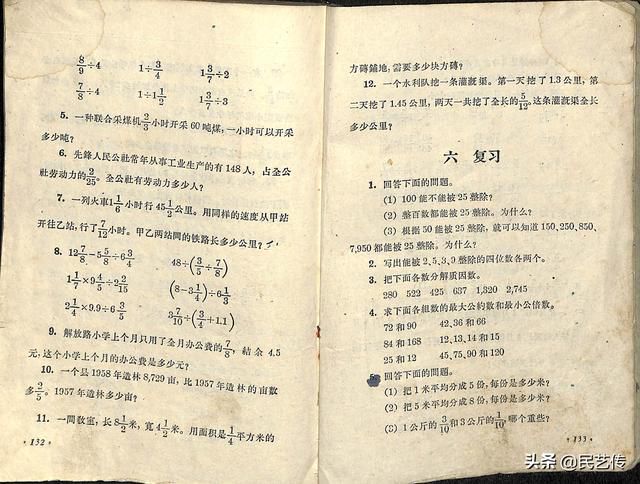 8/9÷4 1÷3/4 1 3/7÷2
7/8÷4 1÷1 1/2 1 3/7÷3
5. 一种联合采煤机2/3小时开采60吨煤,一小时可以开采
多少吨?
6. 先鋒人民公社常年从事工业生产的有148人,占全公
社劳动力的2/25。全公社有劳动力多少人?
7. 一列火車1 1/6小时行45 1/2公里。用同样的速度从甲站
开往乙站,行了7/12小时。甲乙两站間的铁路长多少公里?
8. 12 7/8-5 5/8÷6 3/4 48÷(3/5÷7/8)
1 1/7×9 4/5÷2 2/15 (8-3 1/4)÷6 1/3
2 1/4×9.9÷6 3/5 3 7/10÷(3/4+1.1)
9. 解放路小学上个月只用了全月办公費的7/8,結余4.5
元,这个小学上个月的办公費是多少元?
10. 一个县1958年造林8,729亩,比1957年造林的亩数
多2/5。1957年造林多少亩?
11. 一間教室,长8 1/2米,寬4 1/2米。用面积是1/4平方米的
·132·
方磚鋪地,需要多少块方磚?
12. 一个水利队挖一条灌溉渠。第一天挖了1.3公里,第
二天挖了1.45公里,两天一共挖了全长的5/12。这条灌溉渠全长
多少公里?
六 复习
1. 回答下面的問題。
(1) 100能不能被25整除?
(2) 整百数都能被25整除。为什么?
(3) 根据50能被25整除,就可以知道150,250,850,
7,950都能被25整除。为什么?
2. 写出能被2、5、3、9整除的四位数各两个。
3. 把下面各数分解质因数。
280 522 425 637 1,320 2,745
4. 求下面各組数的最大公約数和最小公倍数。
72和90 42、36和66
84和168 12、13、14和15
25和12 45、75、90和120
5. 回答下面的問題。
(1) 把1米平均分成5份,每份是多少米?
(2) 把5米平均分成8份,每份是多少米?
(3) 1公斤的3/10和3公斤的1/10,哪个重些?
·133·
头条 @民艺传